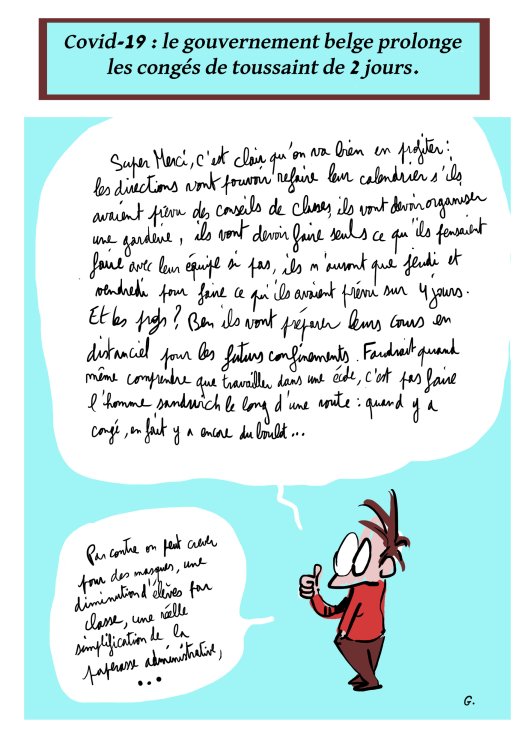 Covid-19 : le gouvernement belge prolonge
les congés de toussaint de 2 jours.
Super Merci, c'est clair qu'on va bien en profiter :
les directions vont pouvoir refaire leur calendrier s'ils
avaient prévu des conseils de classes, ils vont devoir organiser
une garderie, ils vont devoir faire seuls ce qu'ils pensaient
faire avec leur équipe si pas, ils n'auront que jeudi et
vendredi pour faire ce qu'ils avaient prévu sur 4 jours.
Et les profs ? Ben ils vont préparer leurs cours en
distanciel pour les futurs confinements. Faudrait quand
même comprendre que travailler dans une école, c'est pas faire
l'homme sandwich le long d'une route : quand y a
congé, en fait y a encore du boulot...
Par contre on peut crever
pour des masques, une
diminution d'élèves par
classe, une réelle
simplification de la
paperasse administrative,
...
G.